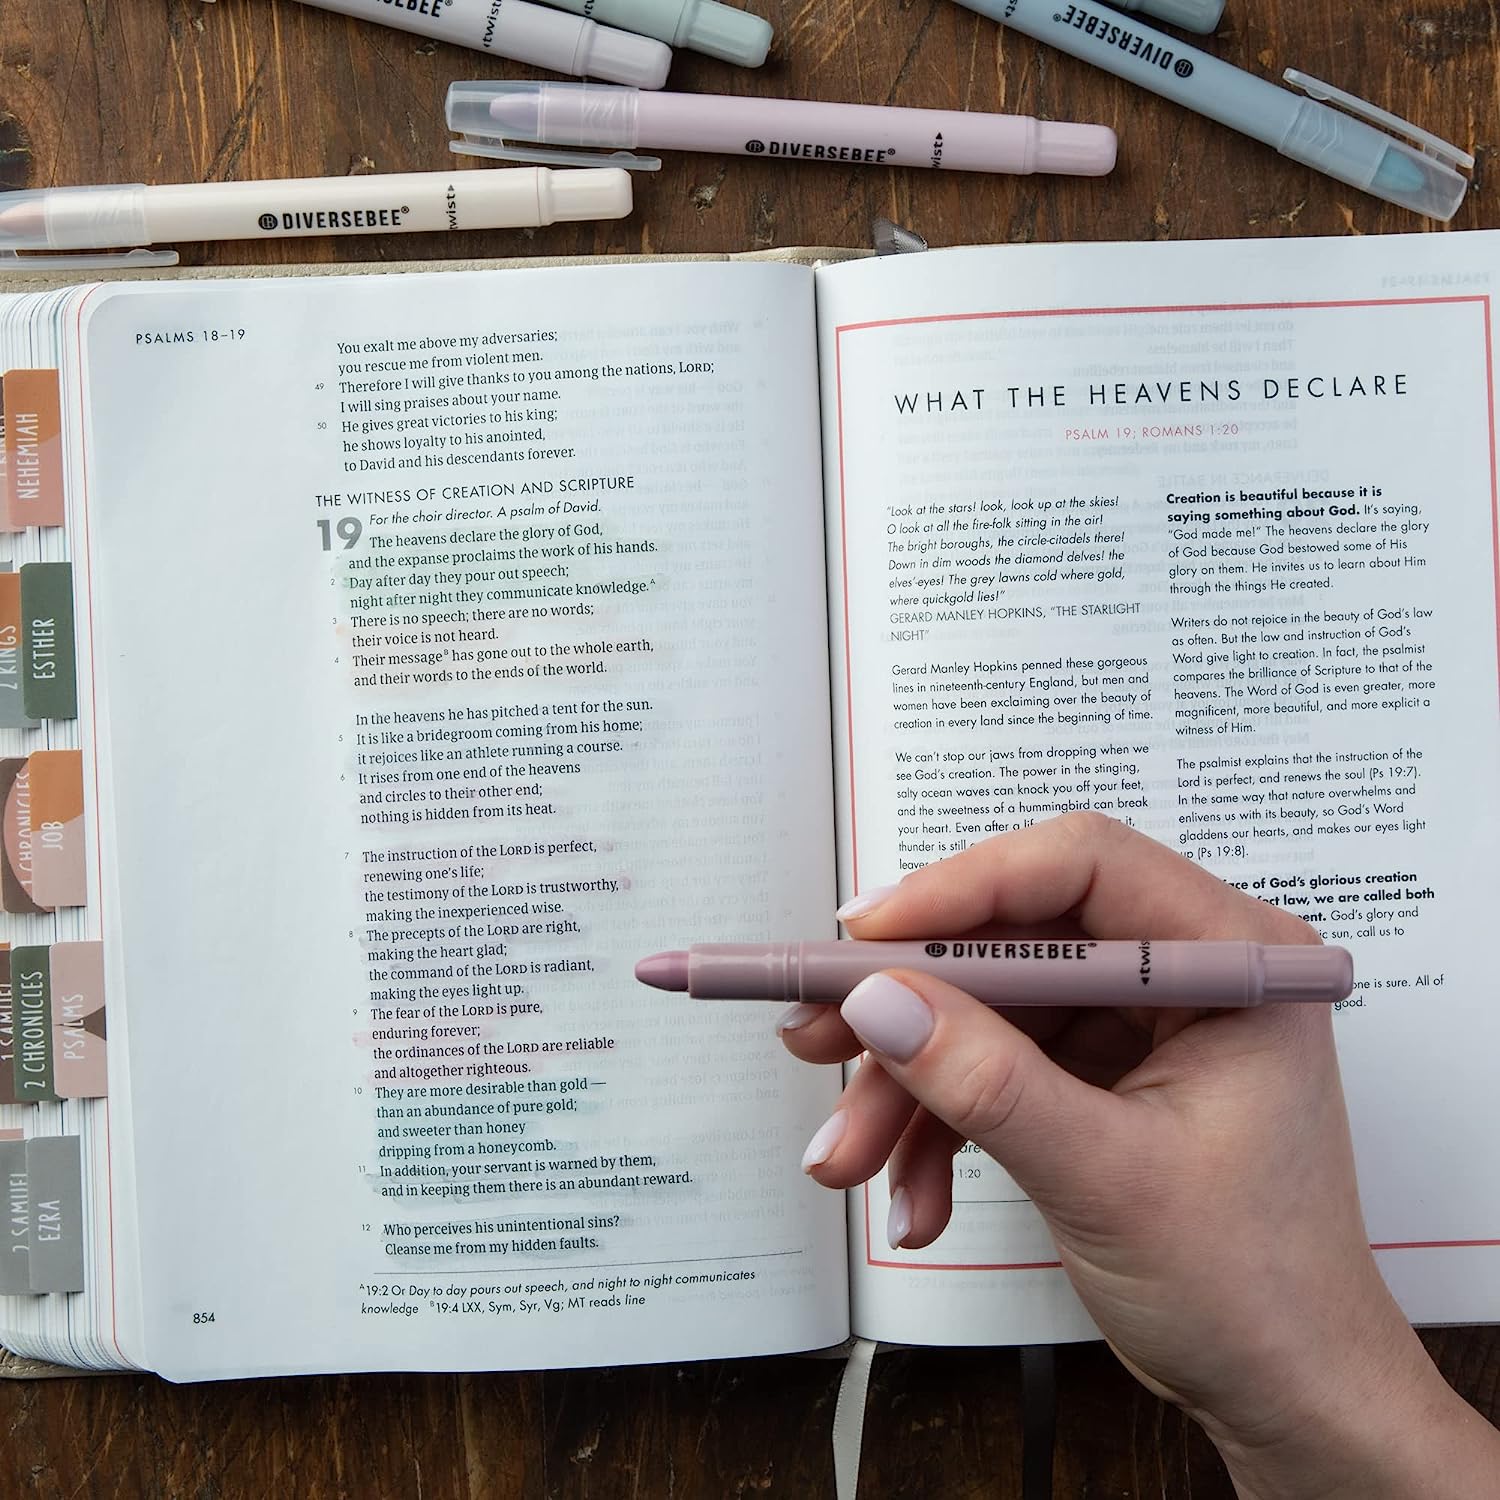 DIVERSEBEE
twist
DIVERSEBEE®
DIVERSEBEE®
twist
DIVERSEBEE®
twist
PSALMS 18–19
You exalt me above my adversaries;
you rescue me from violent men.
49 Therefore I will give thanks to you among the nations, LORD;
I will sing praises about your name.
50 He gives great victories to his king;
he shows loyalty to his anointed,
to David and his descendants forever.
THE WITNESS OF CREATION AND SCRIPTURE
19 For the choir director. A psalm of David.
The heavens declare the glory of God,
and the expanse proclaims the work of his hands.
2 Day after day they pour out speech;
night after night they communicate knowledge.A
3 There is no speech; there are no words;
their voice is not heard.
4 Their messageB has gone out to the whole earth,
and their words to the ends of the world.
In the heavens he has pitched a tent for the sun.
5 It is like a bridegroom coming from his home;
it rejoices like an athlete running a course.
6 It rises from one end of the heavens
and circles to their other end;
nothing is hidden from its heat.
7 The instruction of the LORD is perfect,
renewing one's life;
the testimony of the LORD is trustworthy,
making the inexperienced wise.
8 The precepts of the LORD are right,
making the heart glad;
the command of the LORD is radiant,
making the eyes light up.
9 The fear of the LORD is pure,
enduring forever;
the ordinances of the LORD are reliable
and altogether righteous.
10 They are more desirable than gold —
than an abundance of pure gold;
and sweeter than honey
dripping from a honeycomb.
11 In addition, your servant is warned by them,
and in keeping them there is an abundant reward.
12 Who perceives his unintentional sins?
Cleanse me from my hidden faults.
A 19:2 Or Day to day pours out speech, and night to night communicates
knowledge B 19:4 LXX, Sym, Syr, Vg; MT reads line
854
NEHEMIAH
2 KINGS
ESTHER
1 CHRONICLES
JOB
1 SAMUEL
2 CHRONICLES
PSALMS
2 SAMUEL
EZRA
WHAT THE HEAVENS DECLARE
PSALM 19; ROMANS 1:20
"Look at the stars! look, look up at the skies!
O look at all the fire-folk sitting in the air!
The bright boroughs, the circle-citadels there!
Down in dim woods the diamond delves! the
elves'-eyes! The grey lawns cold where gold,
where quickgold lies!"
GERARD MANLEY HOPKINS, "THE STARLIGHT
NIGHT"
Gerard Manley Hopkins penned these gorgeous
lines in nineteenth-century England, but men and
women have been exclaiming over the beauty of
creation in every land since the beginning of time.
We can't stop our jaws from dropping when we
see God's creation. The power in the stinging,
salty ocean waves can knock you off your feet,
and the sweetness of a hummingbird can break
your heart. Even after a it,
thunder is still
Creation is beautiful because it is
saying something about God. It's saying,
"God made me!" The heavens declare the glory
of God because God bestowed some of His
glory on them. He invites us to learn about Him
through the things He created.
Writers do not rejoice in the beauty of God's law
as often. But the law and instruction of God's
Word give light to creation. In fact, the psalmist
compares the brilliance of Scripture to that of the
heavens. The Word of God is even greater, more
magnificent, more beautiful, and more explicit a
witness of Him.
The psalmist explains that the instruction of the
Lord is perfect, and renews the soul (Ps 19:7).
In the same way that nature overwhelms and
enlivens us with its beauty, so God's Word
gladdens our hearts, and makes our eyes light
up (Ps 19:8).
of God's glorious creation
law, we are called both
God's glory and
sun, call us to
one is sure. All of
good.
1:20
DIVERSEBEE®
twis